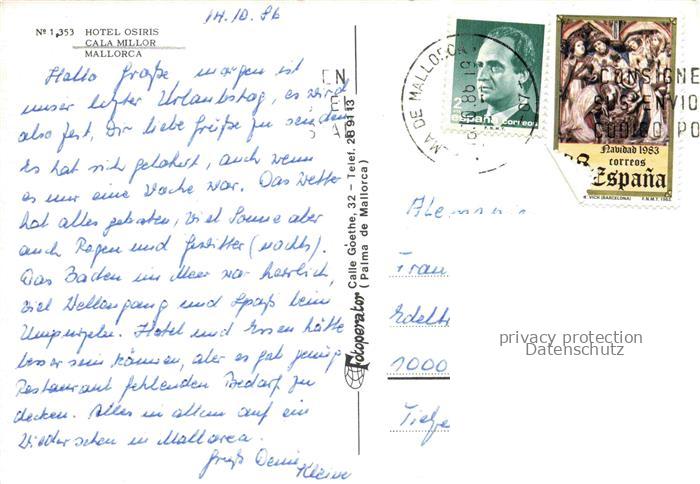 14.10.86
Nº 1.353 HOTEL OSIRIS
CALA MILLOR
MALLORCA
Hallo Große, morgen ist
unser letzter Urlaubstag, es wird
also Zeit, Dir liebe Grüße zu senden
Es hat sich gelohnt, auch wenn
es nur eine Woche war. Das Wetter
hat alles geboten, viel Sonne aber
auch Regen und Gewitter (nachts).
Das Baden im Meer war herrlich,
viel Wellengang und Spaß beim
Hotel und Essen hätte
besser sein können, aber es gab genug
Restaurant fehlenden Bedarf zu
decken. Alles in allem auf ein
Wiedersehen in Mallorca.
Gruß Deine
Kleine
Fotoperator Calle Goethe, 32 – Telef. 28 91 13
(Palma de Mallorca)
MA DE MALLORCA
CONSIGNE
SUS ENVIO
CODIGO PO
españa correos
Navidad 1983
correos
España
R. VICH (BARCELONA) F.N.M.T. 1983
Frau
1000
privacy protection
Datenschutz